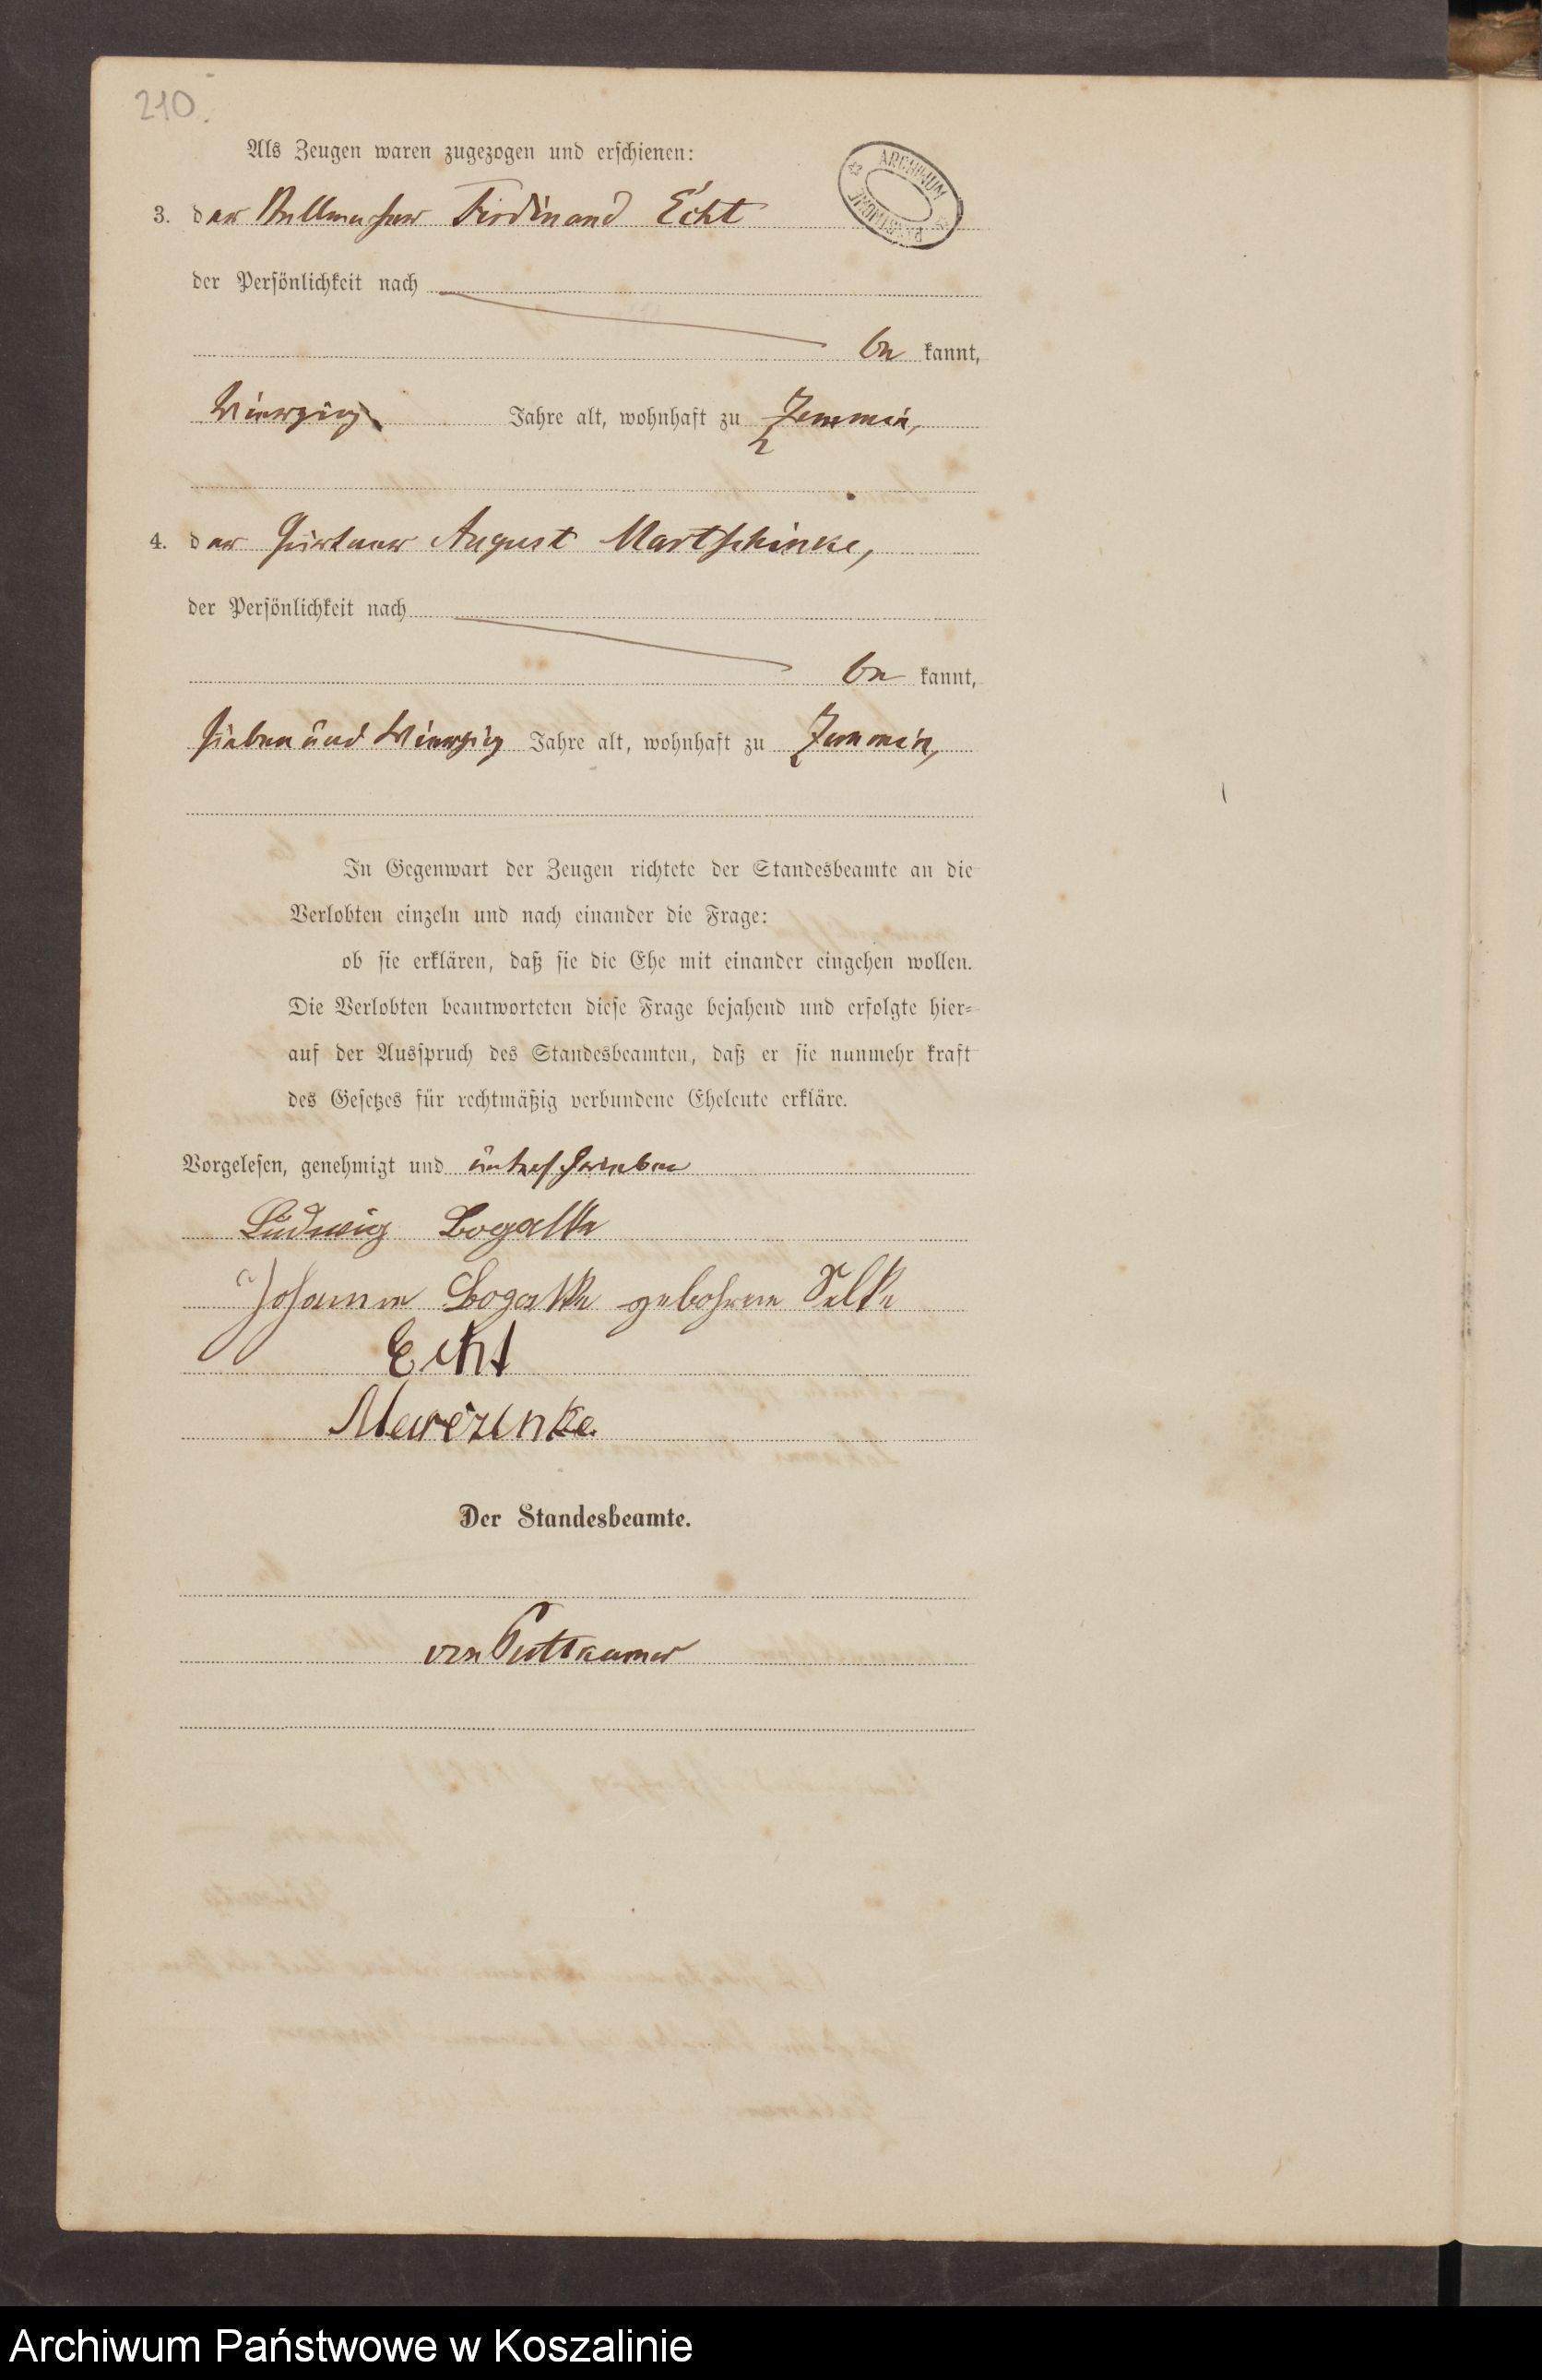 210.
Als Zeugen waren zugezogen und erschienen:
ARCHIWUM
3. der Stellmacher Ferdinand Echt
der Persönlichkeit nach
be kannt,
Vierzig Jahre alt, wohnhaft zu Zemmin,
4. der August Martschinke,
der Persönlichkeit nach
be kannt,
sieben und Vierzig Jahre alt, wohnhaft zu Zemmin,
In Gegenwart der Zeugen richtete der Standesbeamte an die
Verlobten einzeln und nach einander die Frage:
ob sie erklären, daß sie die Ehe mit einander eingehen wollen.
Die Verlobten beantworteten diese Frage bejahend und erfolgte hier-
auf der Ausspruch des Standesbeamten, daß er sie nunmehr kraft
des Gesetzes für rechtmäßig verbundene Eheleute erkläre.
Vorgelesen, genehmigt und unterschrieben
Ludwig Bogatke
Johanne Bogatke gebohrene Selke
Echt
Marczinke.
Der Standesbeamte.
von Puttkamer
Archiwum Państwowe w Koszalinie